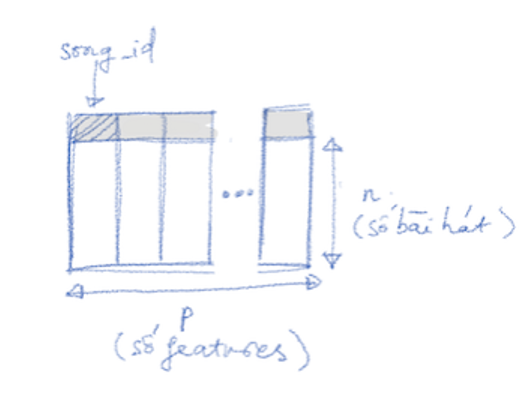 song_id
...
n
(số bài hát)
p
(số features)